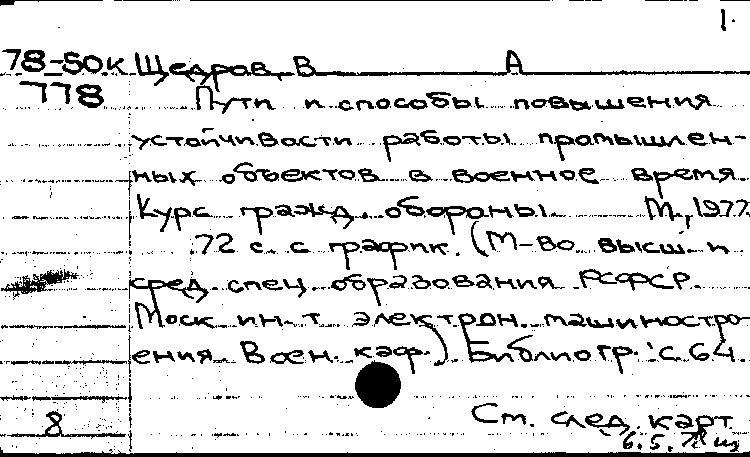 1.
78-50к Щедров, В А
778 Пути и способы повышения
устойчивости работы промышлен-
ных объектов в военное время
Курс гражд. обороны. М., 1977.
72 с. с график. (М-во высш. и
сред. спец. образования РСФСР.
Моск ин-т электрон. машиностро-
ения. Воен. каф.) Библиогр.: с. 64
8 См. след. карт
6.5.78